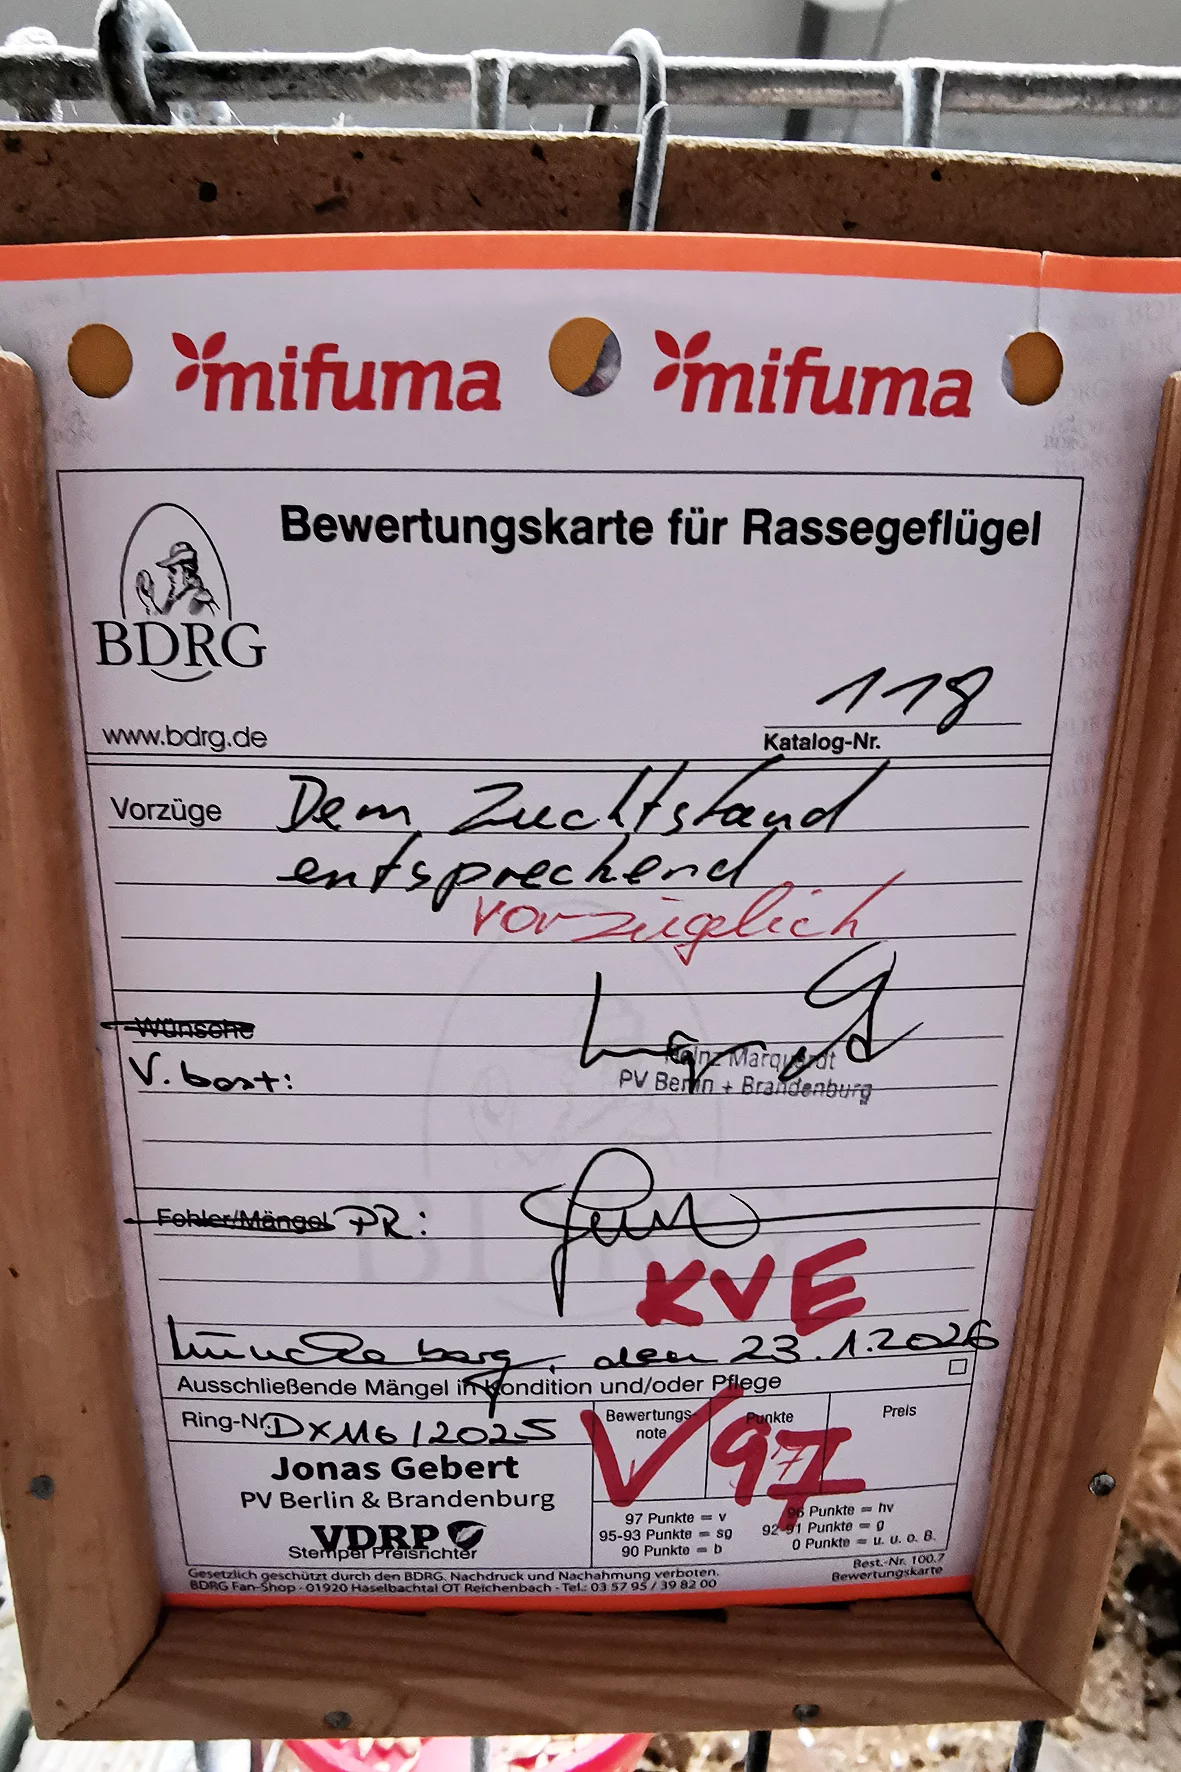 mifuma mifuma
Bewertungskarte für Rassegeflügel
BDRG
www.bdrg.de
118
Katalog-Nr.
Vorzüge Dem Zuchtstand
entsprechend
vorzüglich
Wünsche
Heinz Marquardt
V. bart:
PV Berlin + Brandenburg
Fehler/Mängel PR:
KVE
Müncheberg, den 23.1.2026
Ausschließende Mängel in Kondition und/oder Pflege
Ring-Nr. DXM6/2025
Bewertungs-
note
Punkte
Preis
V 97
Jonas Gebert
PV Berlin & Brandenburg
VDRP
Stempel Preisrichter
97 Punkte = v
96 Punkte = hv
95-93 Punkte = sg
92-91 Punkte = g
90 Punkte = b
0 Punkte = u. u. o. B.
Gesetzlich geschützt durch den BDRG. Nachdruck und Nachahmung verboten.
BDRG Fan-Shop · 01920 Haselbachtal OT Reichenbach · Tel.: 03 57 95 / 39 82 00
Best.-Nr. 100.7
Bewertungskarte